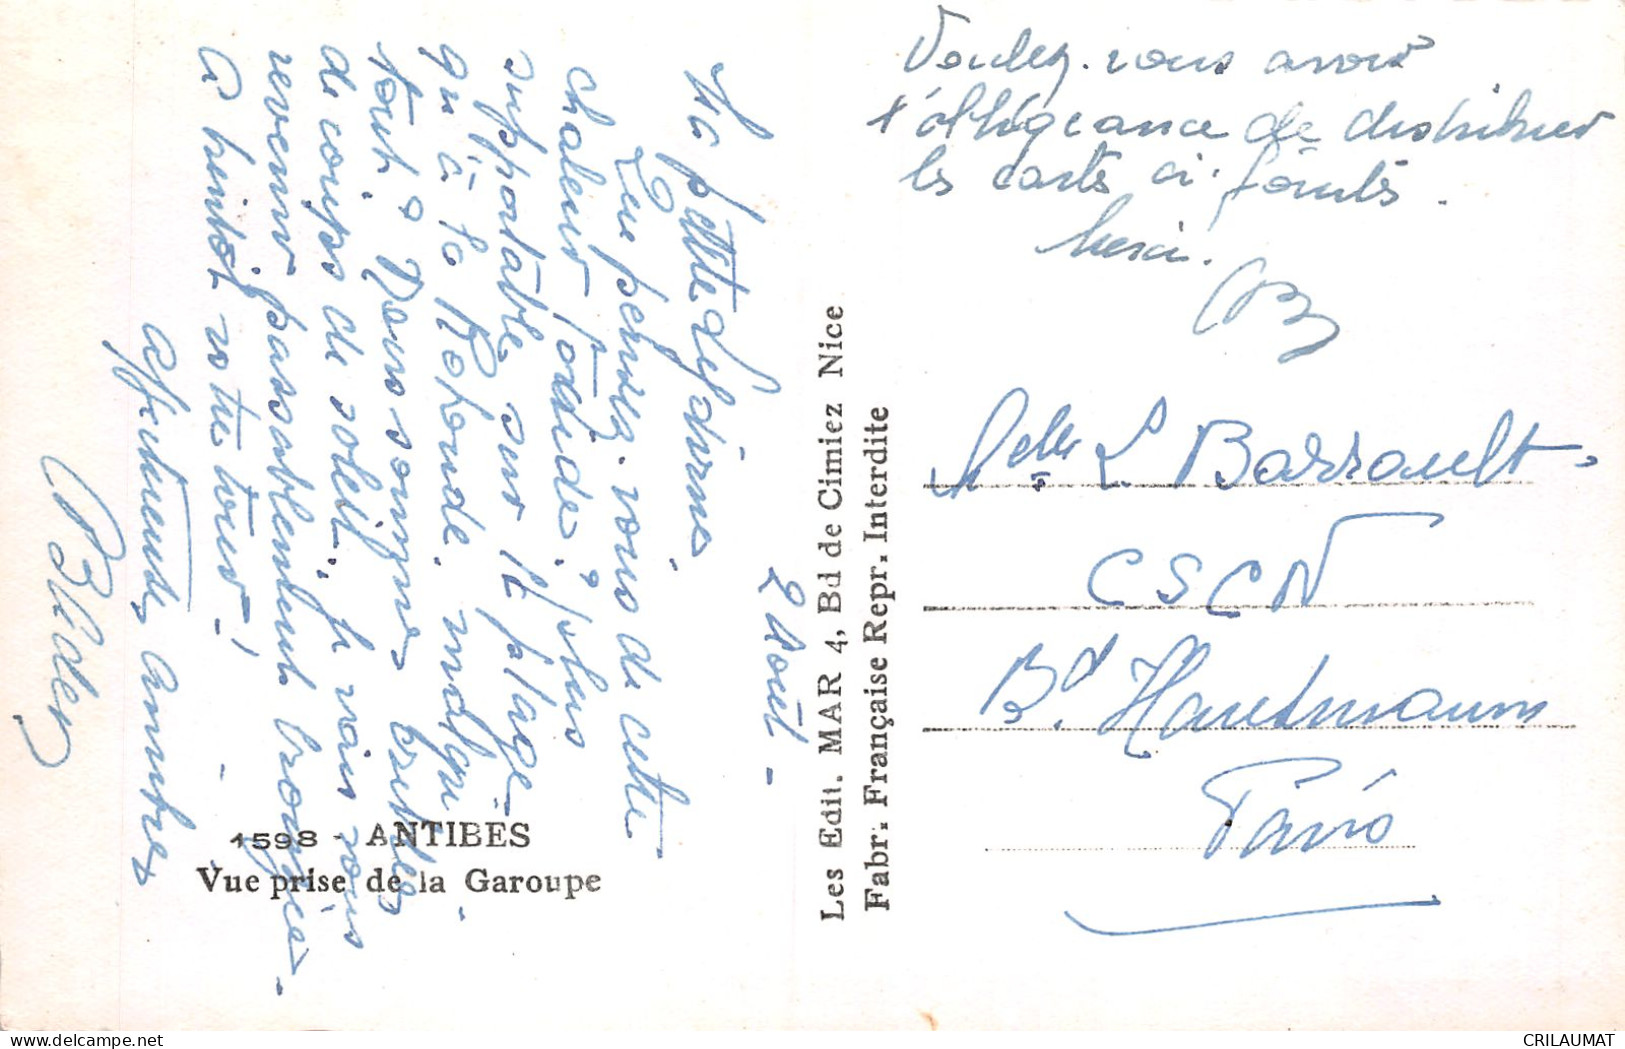 2 Août -
Ma petite Lefèvre.
Que pensez-vous de cette
chaleur torride? Plus
supportable sur la plage
qu'à la Rotonde malgré
tout? Nous sommes brûlés
de coups de soleil. Je vais vous
revenir passablement bronzée -
A bientôt votre tour!
Affectueuses amitiés
1598 - ANTIBES
Vue prise de la Garoupe
Les Edit. MAR 4, Bd de Cimiez Nice
Fabr. Française Repr. Interdite
Voulez-vous avoir
l'obligeance de distribuer
les cartes ci-jointes.
Merci.
Melle L. Barrault
CSCN
Bd. Haussmann
Paris
CRILAUMAT